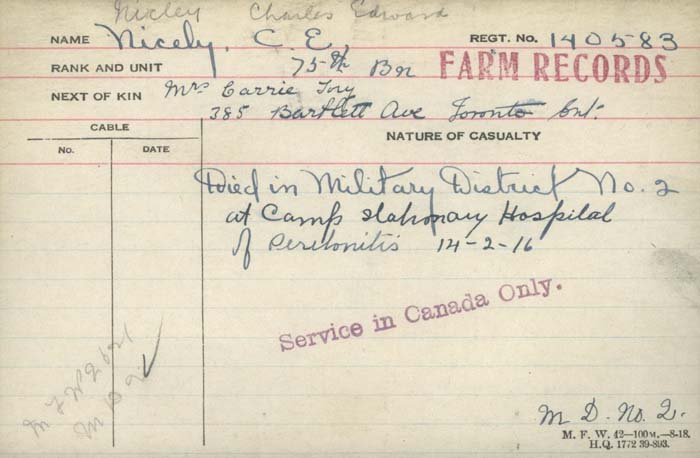 Nicley Charles Edward
NAME Nicely, C. E. REGT. No. 140583
RANK AND UNIT 75th Bn FARM RECORDS
NEXT OF KIN Mrs Carrie Ivry
385 Bartlett Ave Toronto Ont.
CABLE
NATURE OF CASUALTY
No. DATE
Died in Military District No. 2
at Camp Stationary Hospital
of Peritonitis 14-2-16
Service in Canada Only.
M D. No. 2.
M. F. W. 42—100M.—8-18.
H.Q. 1772 39-893.